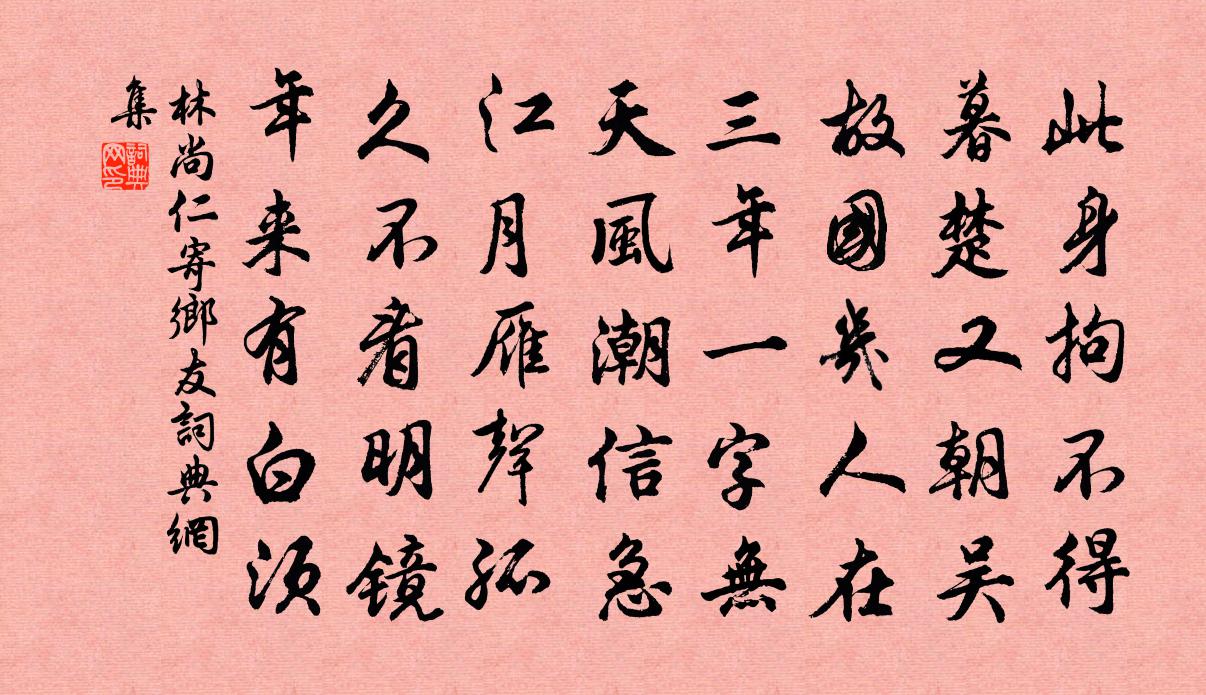 此身拘不得
暮楚又朝吴
故國幾人在
三年一字無
天風潮信急
江月雁聲孤
久不看明镜
年来有白须
林尚仁寄鄉友詞典網
集
詞典网印